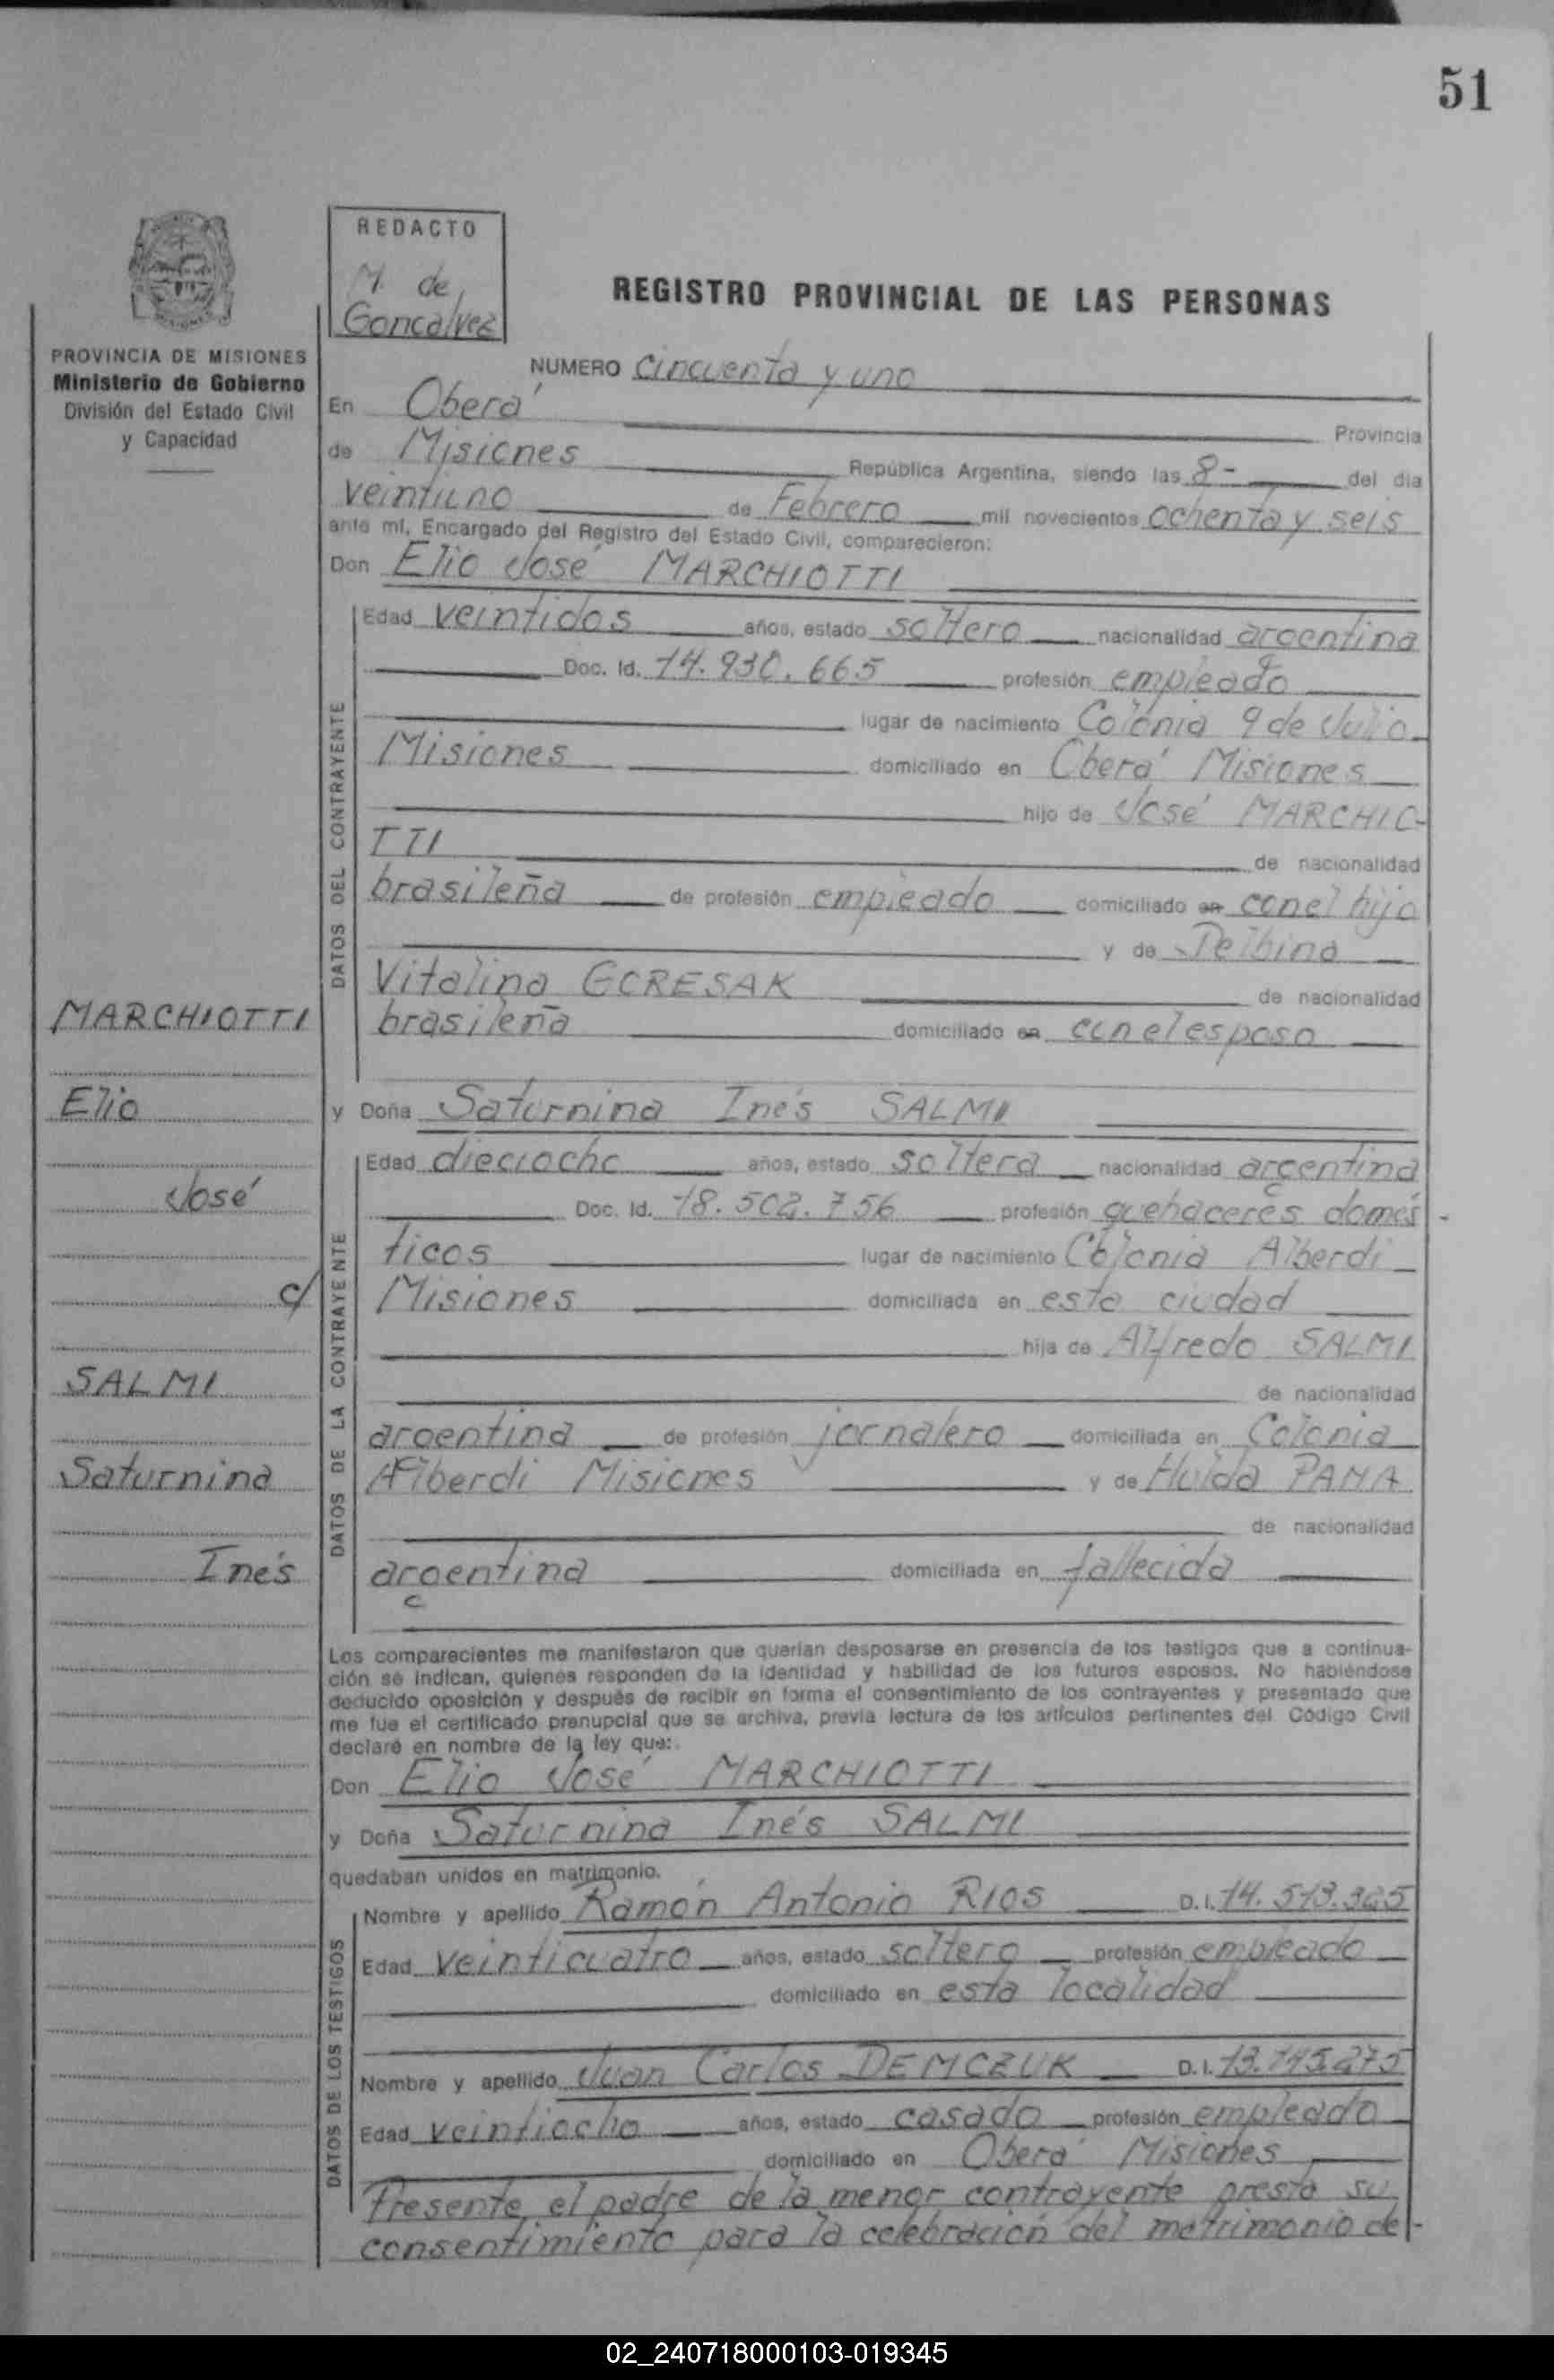 51
REDACTO
M. de
Goncalvez
REGISTRO PROVINCIAL DE LAS PERSONAS
PROVINCIA DE MISIONES
Ministerio de Gobierno
División del Estado Civil
y Capacidad
NUMERO cincuenta y uno
En Oberá Provincia
de Misiones República Argentina, siendo las 8- del dia
veintiuno de Febrero mil novecientos ochenta y seis
ante mí, Encargado del Registro del Estado Civil, comparecieron:
Don Elio José MARCHIOTTI
DATOS DEL CONTRAYENTE
Edad veintidos años, estado soltero nacionalidad argentina
Doc. Id. 14.930.665 profesión empleado
lugar de nacimiento Colonia 9 de Julio
Misiones domiciliado en Oberá Misiones
hijo de José MARCHIO-
TTI de nacionalidad
brasileña de profesión empleado domiciliado en con el hijo
y de Delbina
Vitalina GORESAK de nacionalidad
brasileña domiciliado en con el esposo
MARCHIOTTI
Elio
José
c/
SALMI
Saturnina
Inés
y Doña Saturnina Inés SALMI
DATOS DE LA CONTRAYENTE
Edad dieciocho años, estado soltera nacionalidad argentina
Doc. Id. 18.502.756 profesión quehaceres domés-
ticos lugar de nacimiento Colonia Alberdi
Misiones domiciliada en esta ciudad
hija de Alfredo SALMI
de nacionalidad
argentina de profesión jornalero domiciliada en Colonia
Alberdi Misiones y de Hulda PAMA
de nacionalidad
argentina domiciliada en fallecida
Los comparecientes me manifestaron que querían desposarse en presencia de los testigos que a continua-
ción se indican, quienes responden de la identidad y habilidad de los futuros esposos. No habiéndose
deducido oposición y después de recibir en forma el consentimiento de los contrayentes y presentado que
me fue el certificado prenupcial que se archiva, previa lectura de los artículos pertinentes del Código Civil
declaré en nombre de la ley que:
Don Elio José MARCHIOTTI
y Doña Saturnina Inés SALMI
quedaban unidos en matrimonio.
DATOS DE LOS TESTIGOS
Nombre y apellido Ramón Antonio RIOS D.I. 14.513.365
Edad veinticuatro años, estado soltero profesión empleado
domiciliado en esta localidad
Nombre y apellido Juan Carlos DEMCZUK D.I. 13.145.275
Edad veintiocho años, estado casado profesión empleado
domiciliado en Oberá Misiones
Presente el padre de la menor contrayente presta su
consentimiento para la celebración del matrimonio de-
02_240718000103-019345